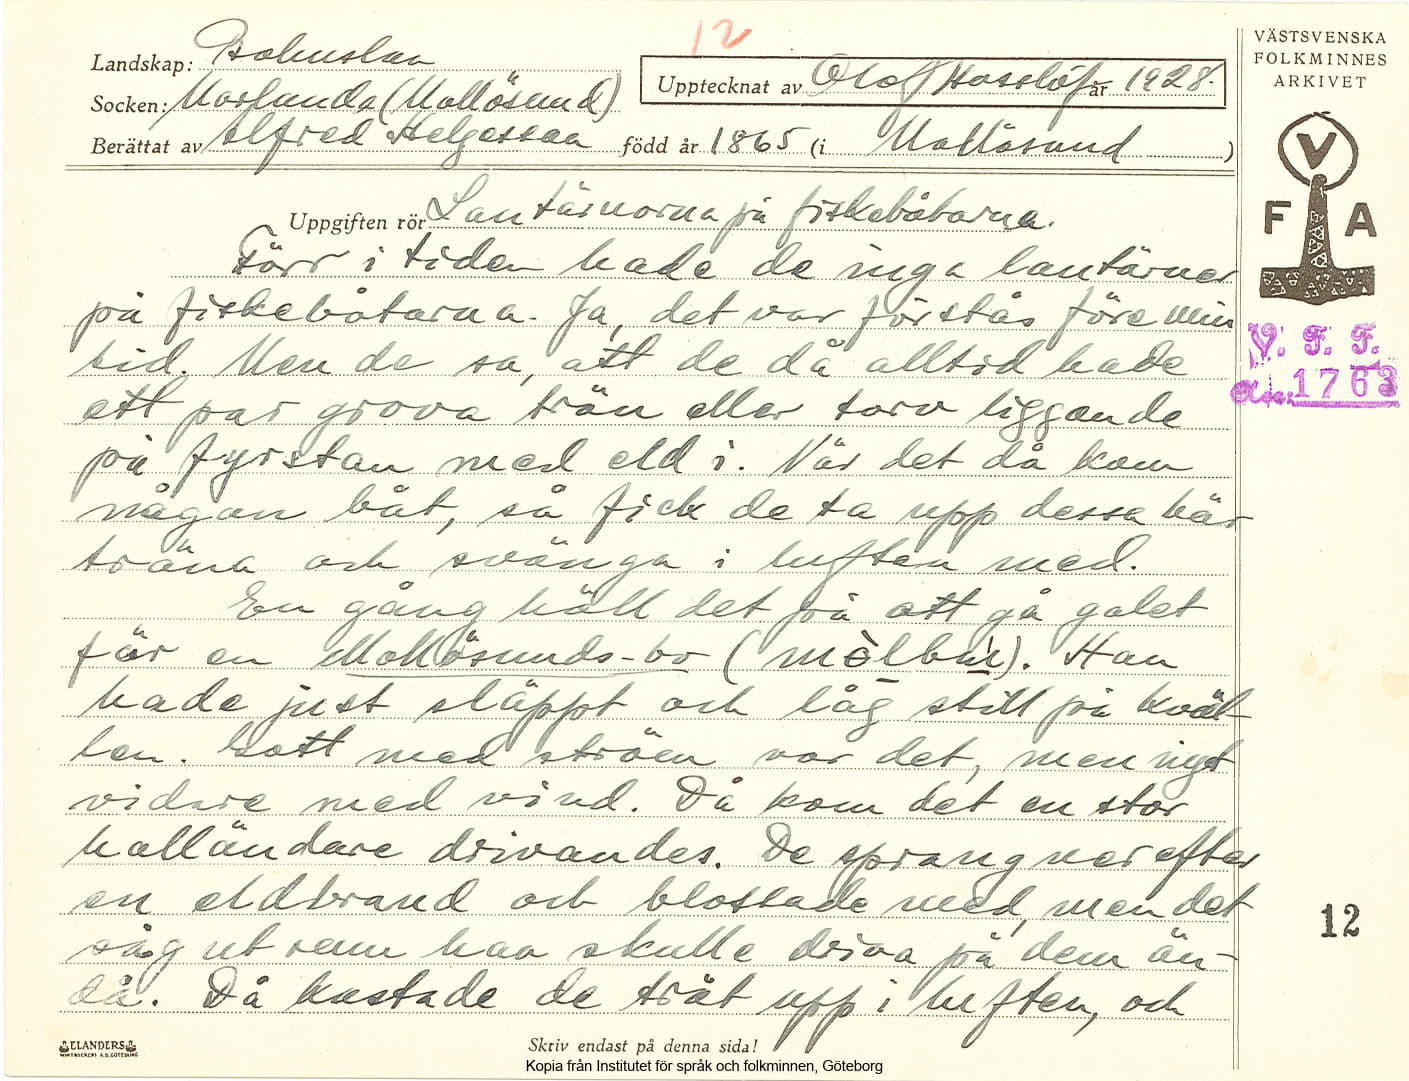 12
VÄSTSVENSKA
FOLKMINNES
ARKIVET
Landskap: Bohuslän
Upptecknat av Olof Hasslöf år 1928.
Socken: Morlanda (Mollösund)
Berättat av Alfred Helgesson född år 1865 (i Mollösund)
V
F A
V. F. F.
1763
Uppgiften rör Lantärnorna på fiskebåtarna.
Förr i tiden hade de inga lantärner
på fiskebåtarna. Ja, det var förstås före min
tid. Men de sa, att de då alltid hade
ett par grova trän eller torv liggande
på fyrstan med eld i. När det då kom
någon båt, så fick de ta upp dessa här
träna och svänga i luften med.
En gång höll det på att gå galet
för en Mollösunds-bo ( ). Han
hade just släppt och låg still på kväl-
len. Gott med ström var det, men inget
vidare med vind. Då kom det en stor
halländare drivandes. De sprang ner efter
en eldbrand och blossade med, men det
såg ut som han skulle driva på dem än-
då. Då kastade de trät upp i luften, och
12
ELANDERS
Skriv endast på denna sida!
Kopia från Institutet för språk och folkminnen, Göteborg